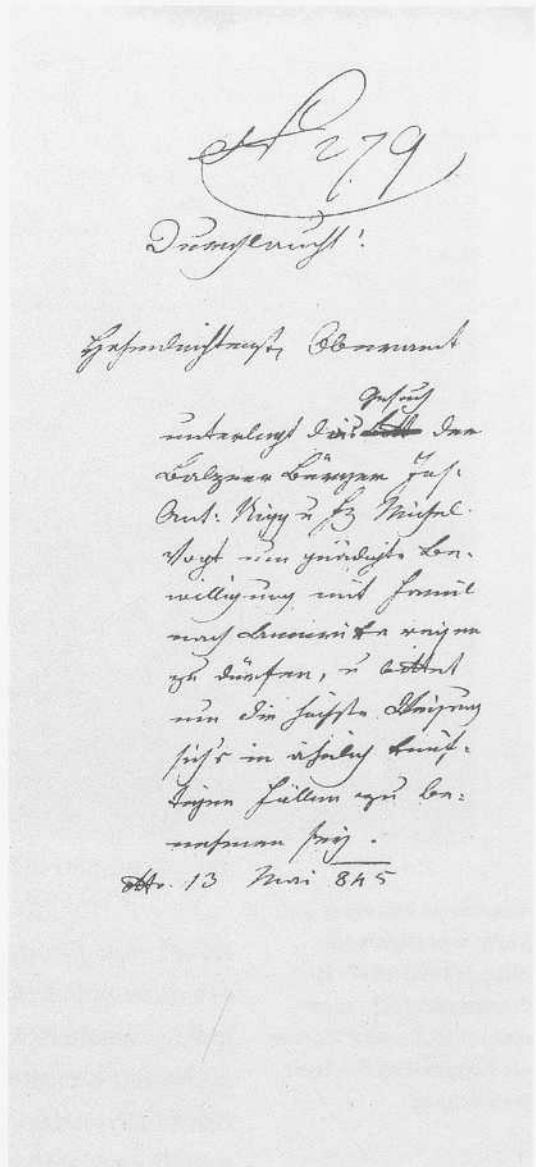 N 279
Durchlaucht!
Oberamt
Gesuch
unterlegt das der
Balzner Bürger Jos:
Ant: Nigg u Fz Michel
Vogt um gnädigste Be-
willigung mit Famil
nach Amerika reisen
zu dürfen, u bittet
um die höchste Weisung
sich's in ähnlich künf-
tigen Fällen zu be-
nehmen sey.
13 Mai 845